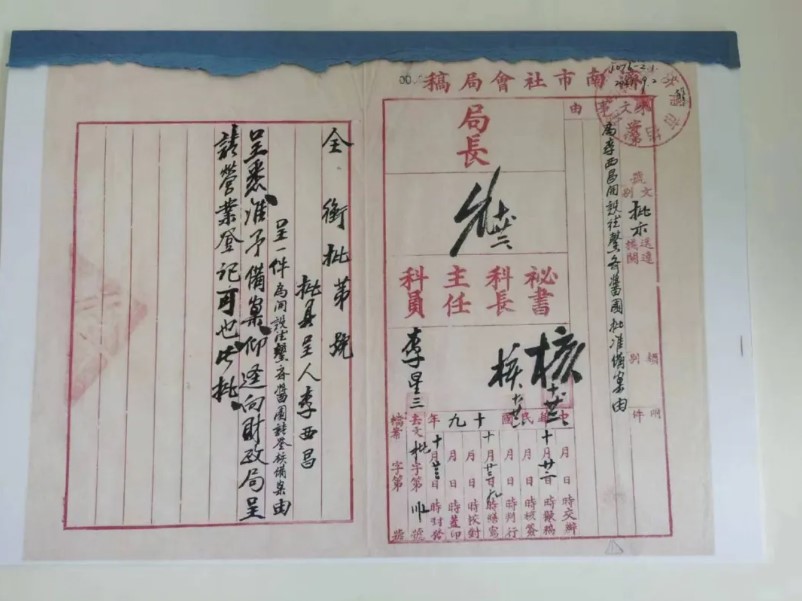 濟南市社會局稿
事由
為李西昌開設德馨齋醬園批准備案由
文別
批示
送達機關
類別
附件
局長
祕書
科長
主任
科員
核
李星三
中華民國十九年
月 日 時交辦
十月廿二日 時擬稿
月 日 時核簽
月 日 時判行
十月廿三日 時繕寫
月 日 時校對
月 日 時蓋印
十月廿三日 時封發
去文 批字第 號
檔案 字第 號
全銜批第 號
批具呈人李西昌
呈一件為開設德馨齋醬園請登核備案由
呈悉准予備案仰逕向財政局呈
請營業登記可也此批